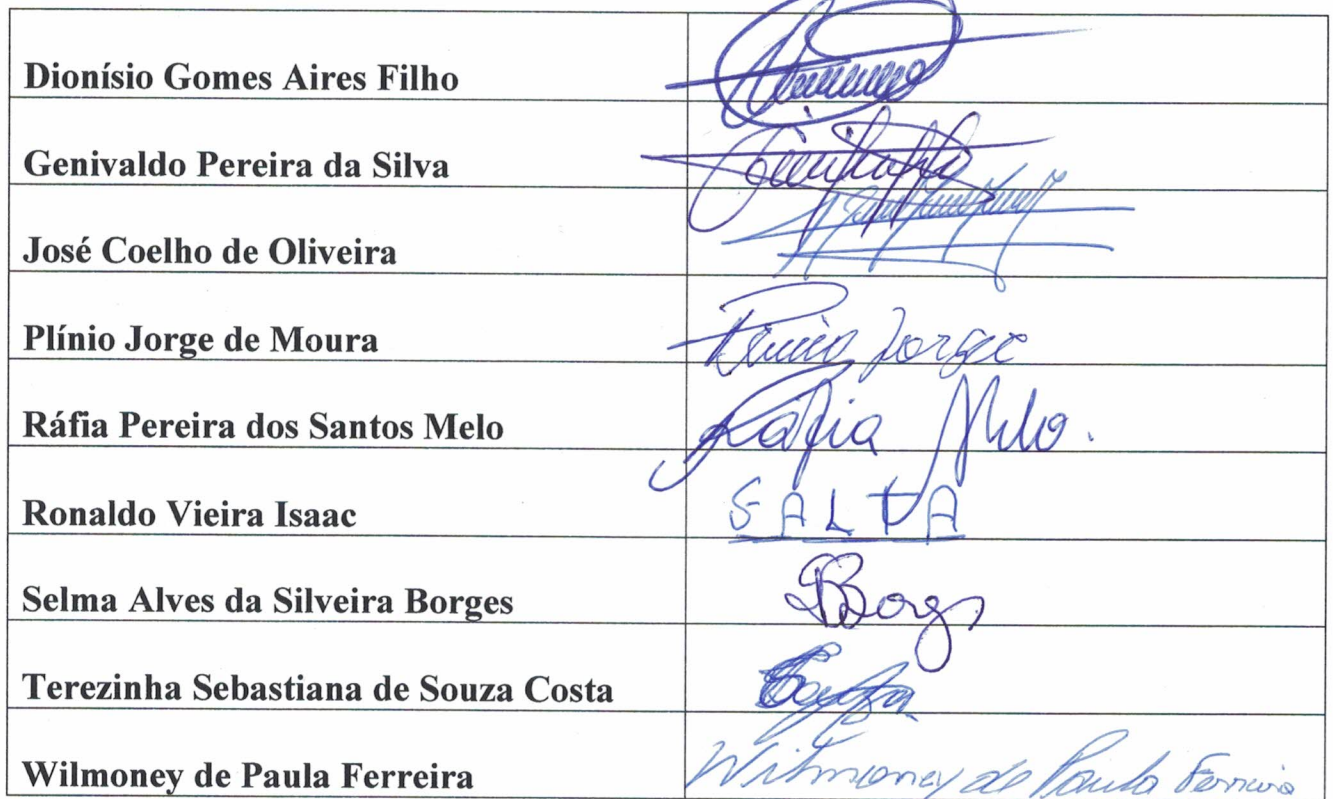 Dionísio Gomes Aires Filho
Genivaldo Pereira da Silva
José Coelho de Oliveira
Plínio Jorge de Moura Plinio Jorge
Ráfia Pereira dos Santos Melo Ráfia Melo.
Ronaldo Vieira Isaac FALTA
Selma Alves da Silveira Borges
Terezinha Sebastiana de Souza Costa
Wilmoney de Paula Ferreira Wilmoney de Paula Ferreira